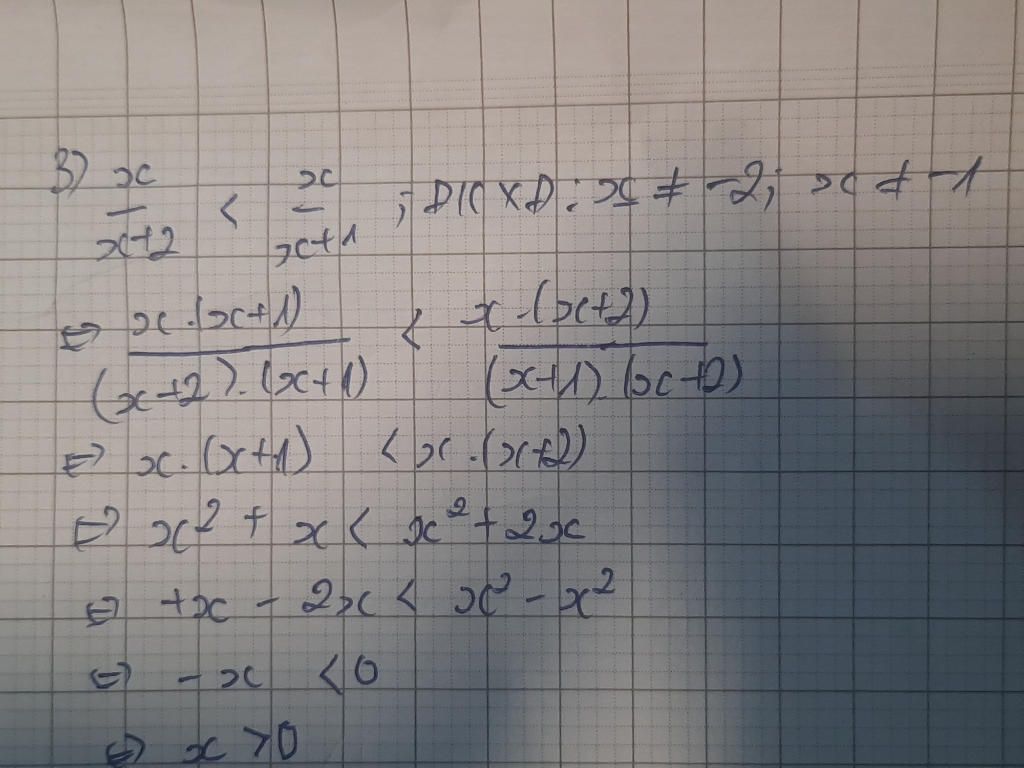 3) x/(x+2) < x/(x+1) ; ĐKXĐ: x ≠ -2; x ≠ -1
⇔ x.(x+1)/((x+2).(x+1)) < x.(x+2)/((x+1).(x+2))
⇔ x.(x+1) < x.(x+2)
⇔ x² + x < x² + 2x
⇔ +x - 2x < x² - x²
⇔ -x < 0
⇔ x > 0